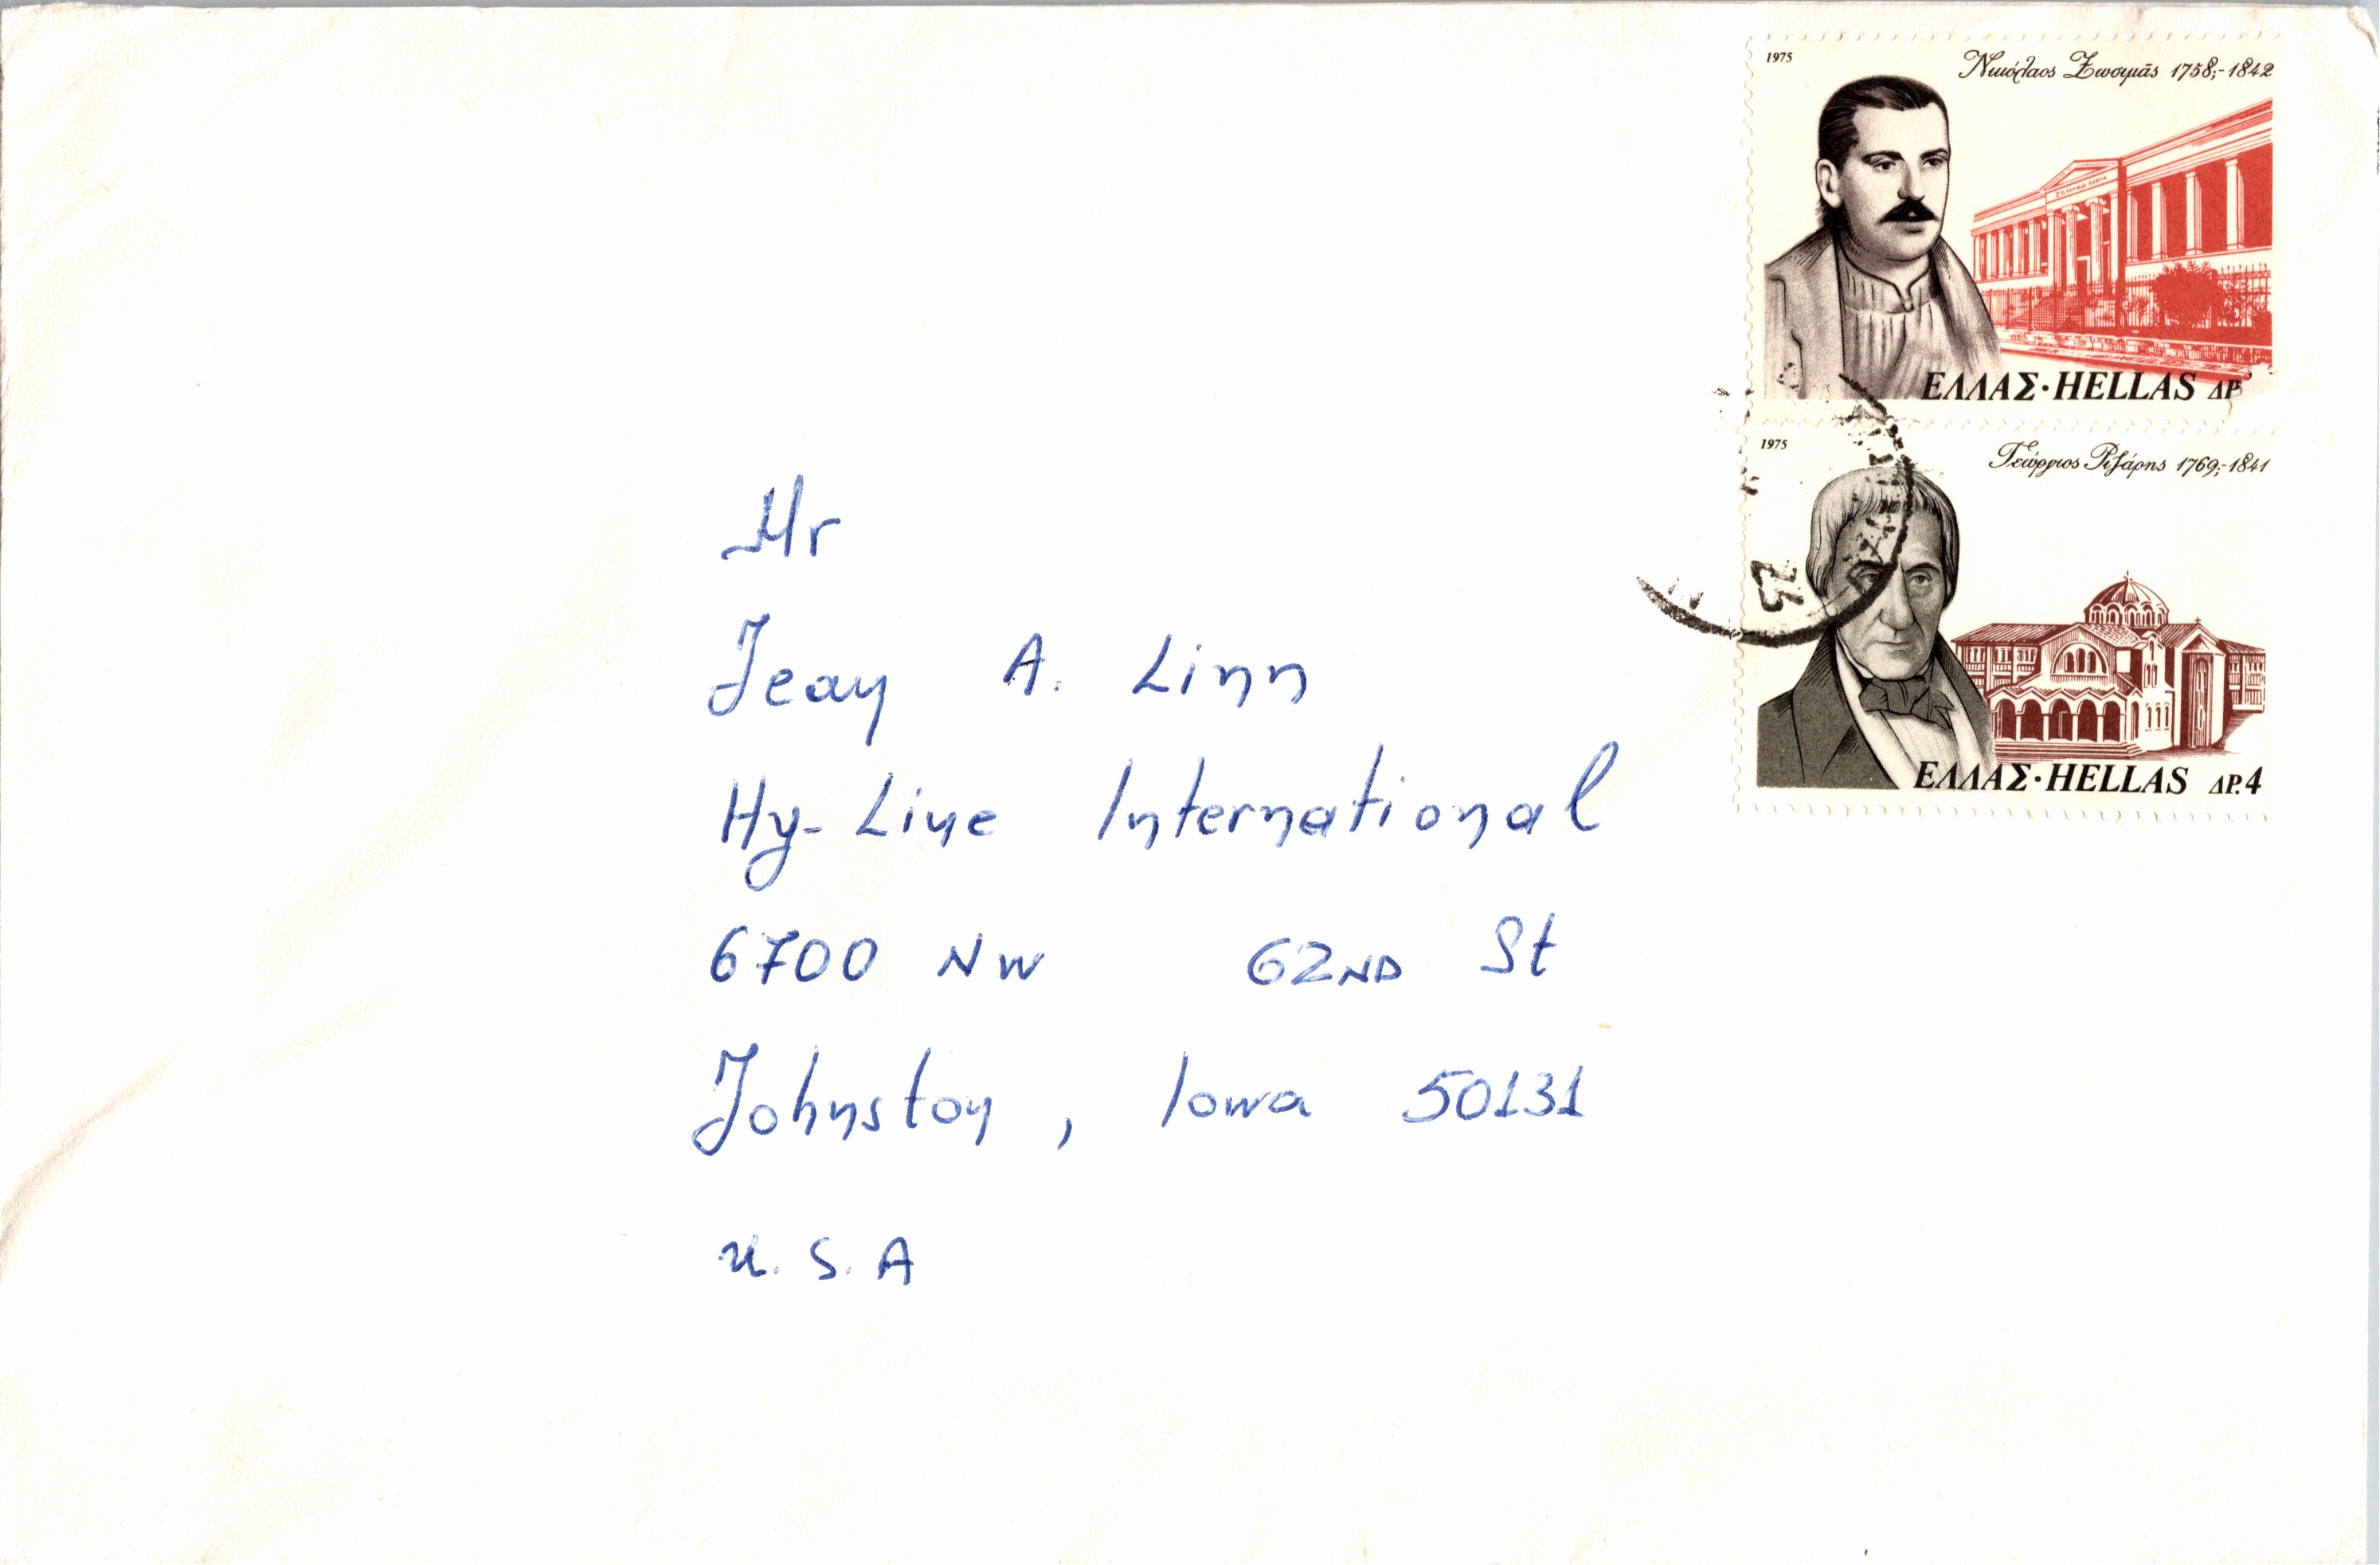 1975
Νικόλαος Ζωσιμᾶς 1758;-1842
ΕΛΛΑΣ·HELLAS ΔΡ
1975
Γεώργιος Ριζάρης 1769;-1841
25
ΕΛΛΑΣ·HELLAS ΔΡ.4
Mr
Jean A. Linn
Hy-Line International
6700 NW 62ND St
Johnston, Iowa 50131
U.S.A